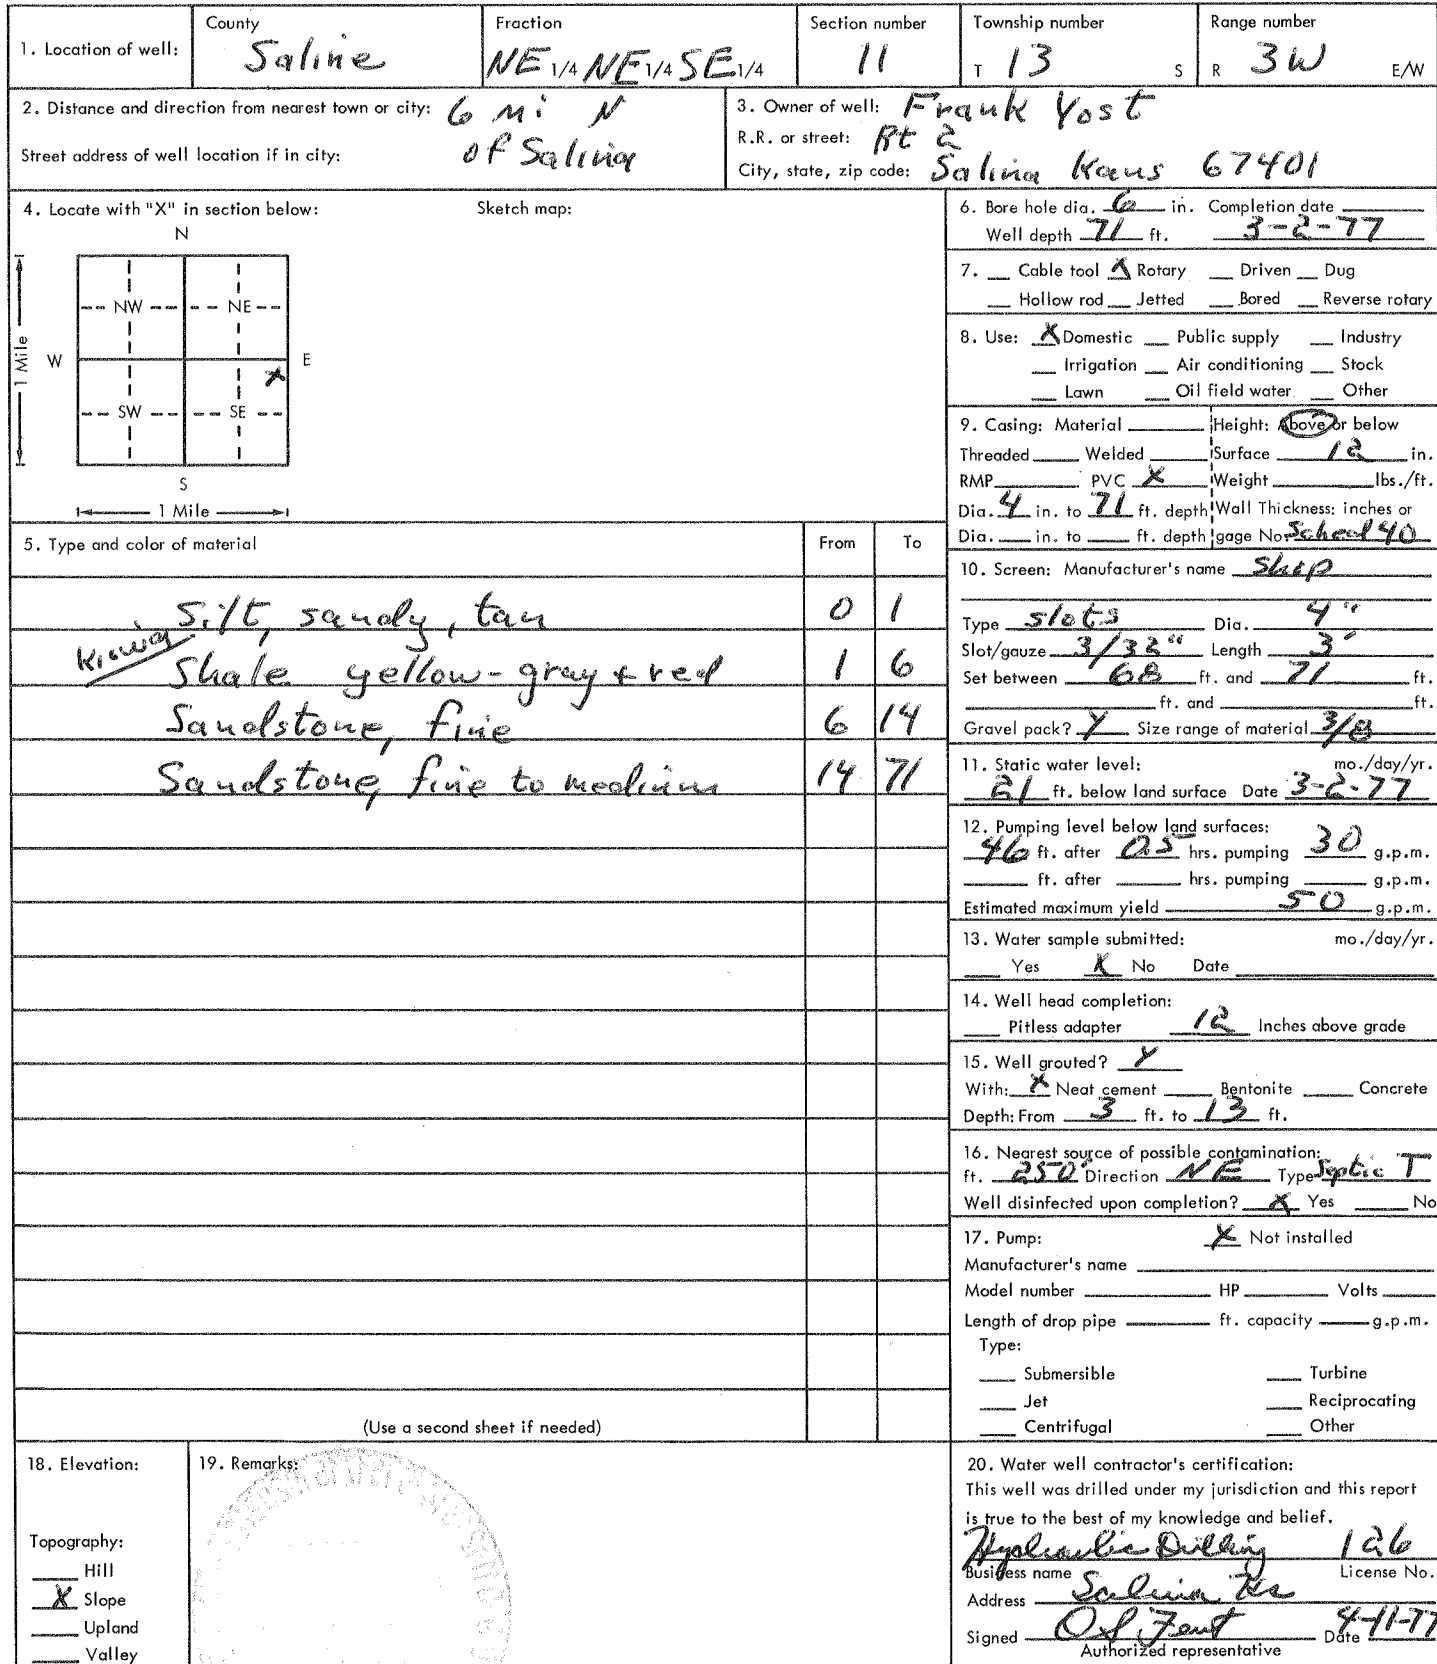 1. Location of well: County Saline Fraction NE 1/4 NE 1/4 SE 1/4 Section number 11 Township number T 13 S Range number R 3W E/W
2. Distance and direction from nearest town or city: 6 mi N
of Salina
Street address of well location if in city:
3. Owner of well: Frank Yost
R.R. or street: Rt 2
City, state, zip code: Salina Kans 67401
4. Locate with "X" in section below: Sketch map:
N
NW NE
W E
X
SW SE
S
1 Mile
1 Mile
5. Type and color of material From To
Silt, sandy, tan 0 1
Kiowa
Shale yellow-gray + red 1 6
Sandstone, fine 6 14
Sandstone, fine to medium 14 71
(Use a second sheet if needed)
6. Bore hole dia. 6 in. Completion date
Well depth 71 ft. 3-2-77
7. Cable tool X Rotary Driven Dug
Hollow rod Jetted Bored Reverse rotary
8. Use: X Domestic Public supply Industry
Irrigation Air conditioning Stock
Lawn Oil field water Other
9. Casing: Material Height: Above or below
Threaded Welded Surface 12 in.
RMP PVC X Weight lbs./ft.
Dia. 4 in. to 71 ft. depth Wall Thickness: inches or
Dia. in. to ft. depth gage No. Sched 40
10. Screen: Manufacturer's name Shop
Type slots Dia. 4"
Slot/gauze 3/32" Length 3'
Set between 68 ft. and 71 ft.
ft. and ft.
Gravel pack? Y Size range of material 3/8
11. Static water level: mo./day/yr.
21 ft. below land surface Date 3-2-77
12. Pumping level below land surfaces:
46 ft. after 0.5 hrs. pumping 30 g.p.m.
ft. after hrs. pumping g.p.m.
Estimated maximum yield 50 g.p.m.
13. Water sample submitted: mo./day/yr.
Yes X No Date
14. Well head completion:
Pitless adapter 12 Inches above grade
15. Well grouted? Y
With: X Neat cement Bentonite Concrete
Depth: From 3 ft. to 13 ft.
16. Nearest source of possible contamination:
ft. 250' Direction NE Type Septic T
Well disinfected upon completion? X Yes No
17. Pump: X Not installed
Manufacturer's name
Model number HP Volts
Length of drop pipe ft. capacity g.p.m.
Type:
Submersible Turbine
Jet Reciprocating
Centrifugal Other
18. Elevation:
Topography:
Hill
X Slope
Upland
Valley
19. Remarks:
20. Water well contractor's certification:
This well was drilled under my jurisdiction and this report
is true to the best of my knowledge and belief.
Hydraulic Drilling 126
Business name License No.
Address Salina Ks
Signed O S Fent Date 4-11-77
Authorized representative